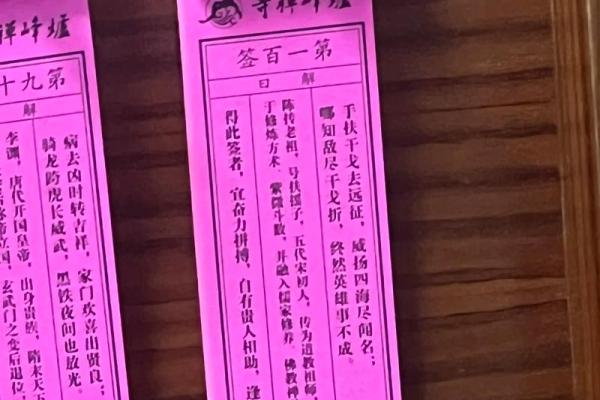 爐峰禅寺
第一百签
解曰
手扶干戈去远征，威扬四海尽闻名；
哪知敌尽干戈折，终然英雄事不成。
陈传老祖，号扶摇子，五代宋初人，传为道教祖师，
于修炼方术 紫微斗数，并融入儒家修养 佛教禅
得此签者，宜奋力拼搏，自有贵人相助，逢
爐峰禅
第九十
解
病去凶时转吉祥，家门欢喜出贤良；
骑龙跨虎长威武，黑铁夜间也放光。
李渊，唐代开国皇帝，出身贵族，隋末天下
立国，玄武门之变后退位，